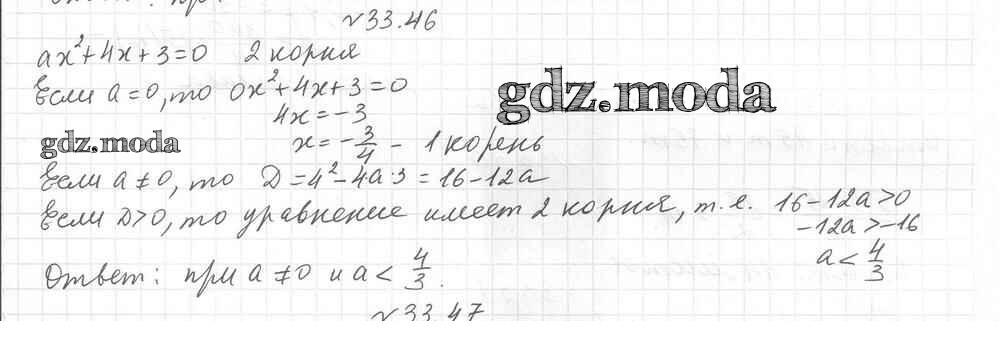 №33.46
ax²+4x+3=0 2 корня
Если a=0, то 0x²+4x+3=0
4x=-3
gdz.moda
gdz.moda
x=-3/4 - 1 корень
Если a≠0, то D=4²-4a·3=16-12a
Если D>0, то уравнение имеет 2 корня, т.е. 16-12a>0
-12a>-16
a<4/3
Ответ: при a≠0 и a<4/3.
№33.47